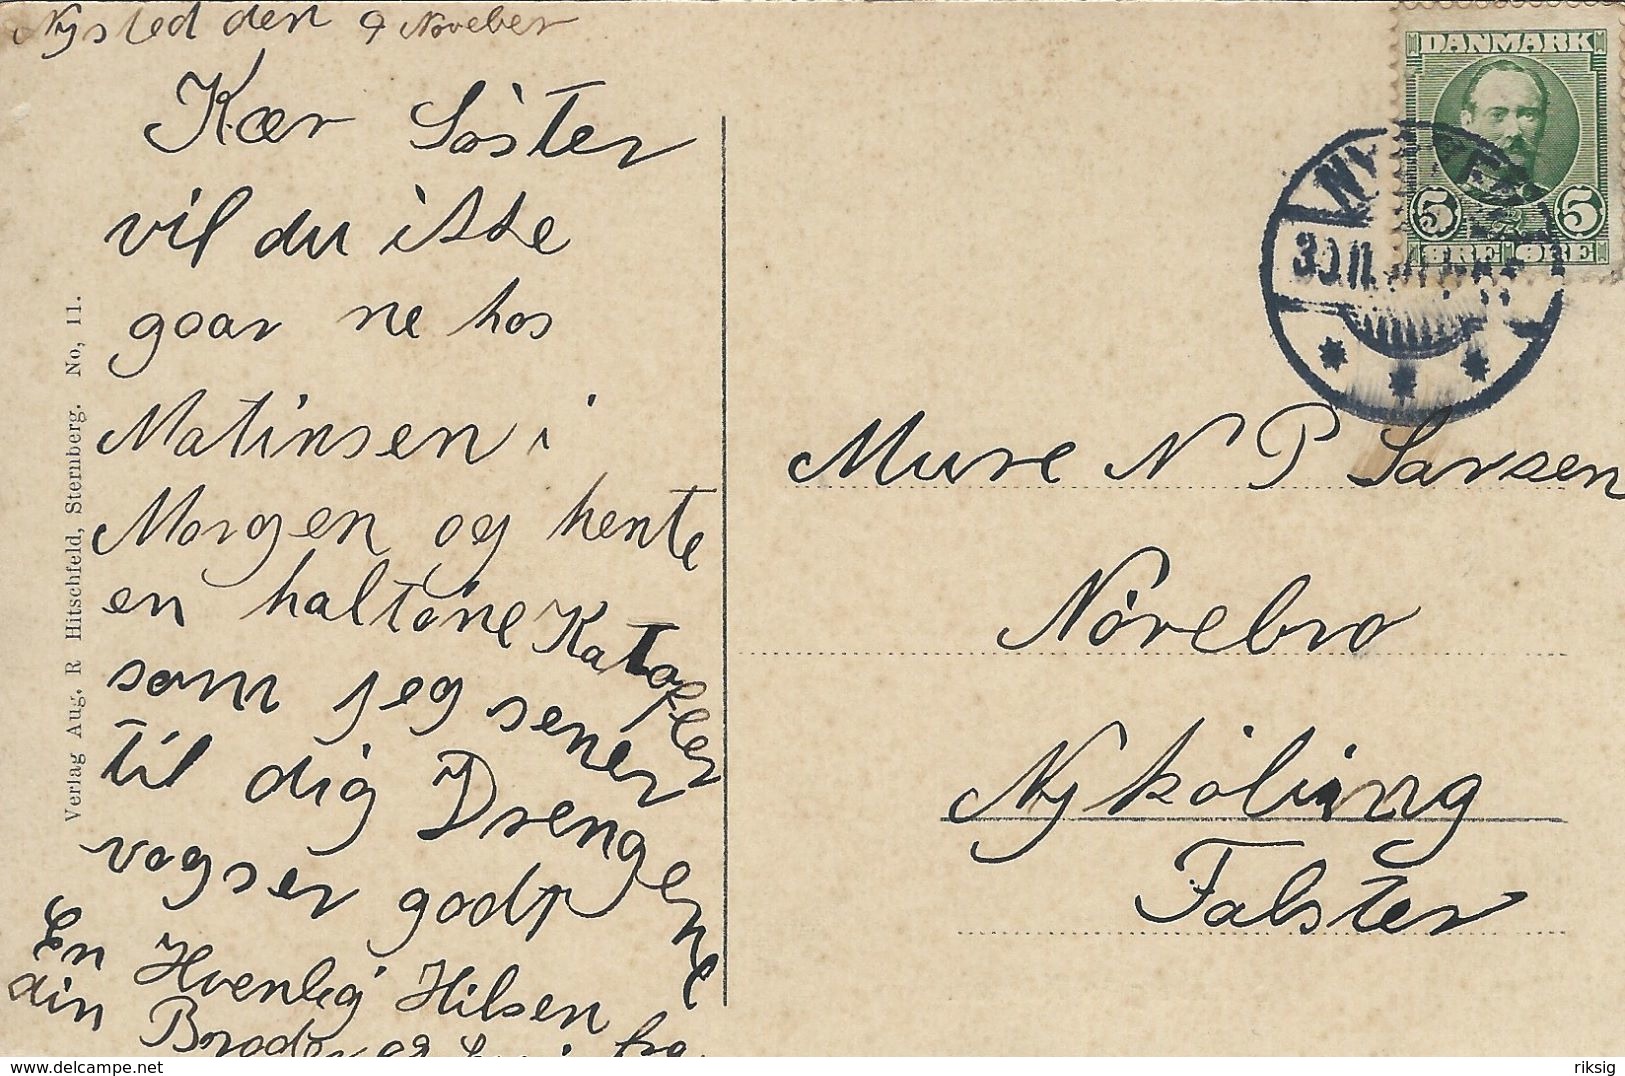 Nysted den 9 Noveber
Kær Søster
vil du ikke
gaar ne hos
Matinsen i
Morgen og hente
en haltøne Katofler
som jeg sener
til dig Drengene
vogser godt
En Hvenlig Hilsen
din Broder og fra
Verlag Aug. R Hitschfeld, Sternberg. No, 11.
DANMARK
5 5
ØRE ØRE
30.11.
Mure N P Larsen
Nörebro
Nyköling
Falster
delcampe.net
riksig